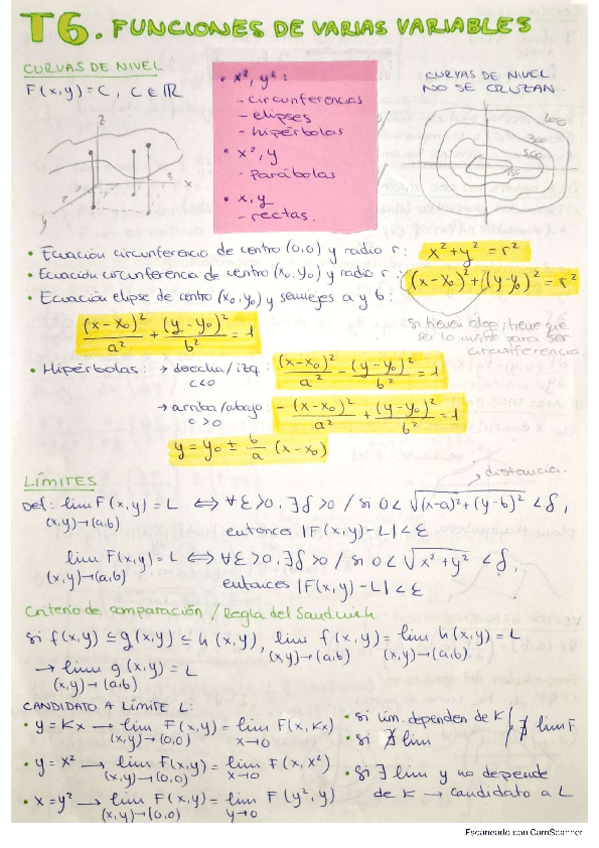 T6. FUNCIONES DE VARIAS VARIABLES
CURVAS DE NIVEL
F(x,y)=C, C∈ℝ
z
x
y
• x², y²:
- circunferencias
- elipses
- hipérbolas
• x², y
- parábolas
• x, y
- rectas.
CURVAS DE NIVEL
NO SE CRUZAN
• Ecuación circunferencia de centro (0,0) y radio r: x²+y²=r²
• Ecuación circunferencia de centro (x₀,y₀) y radio r: (x-x₀)²+(y-y₀)²=r²
• Ecuación elipse de centro (x₀,y₀) y semiejes a y b:
(x-x₀)²/a² + (y-y₀)²/b² = 1
si tienen algo, tiene que
ser lo mismo para ser
circunferencia.
• Hipérbolas: → derecha/izq: (x-x₀)²/a² - (y-y₀)²/b² = 1
c<0
→ arriba/abajo: -(x-x₀)²/a² + (y-y₀)²/b² = 1
c>0
y = y₀ ± b/a (x-x₀)
LÍMITES
→ distancia.
Def: lim F(x,y)=L ⟺ ∀ε>0, ∃δ>0 / si 0<√(x-a)²+(y-b)² <δ,
(x,y)→(a,b) entonces |F(x,y)-L|<ε
lim F(x,y)=L ⟺ ∀ε>0, ∃δ>0 / si 0<√x²+y² <δ,
(x,y)→(a,b) entonces |F(x,y)-L|<ε
Criterio de comparación / Regla del Sandwich
si f(x,y) ≤ g(x,y) ≤ h(x,y), lim f(x,y) = lim h(x,y) = L
(x,y)→(a,b) (x,y)→(a,b)
→ lim g(x,y) = L
(x,y)→(a,b)
CANDIDATO A LÍMITE L:
• y=Kx → lim F(x,y) = lim F(x,Kx)
(x,y)→(0,0) x→0
• si lim. dependen de K } ∄ lim F
• si ∄ lim
• y=x² → lim F(x,y) = lim F(x,x²)
(x,y)→(0,0) x→0
• si ∃ lim y no depende
de K → candidato a L
• x=y² → lim F(x,y) = lim F(y²,y)
(x,y)→(0,0) y→0
Escaneado con CamScanner